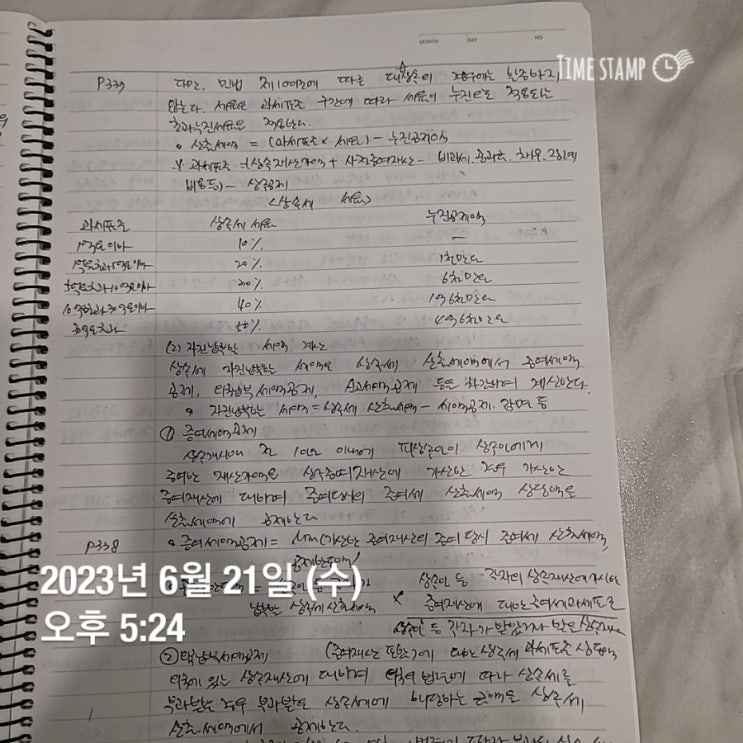 MONTH DAY NO
TIME STAMP
P337 다만, 민법 제1001조에 따른 대습상속의 경우에는 할증하지
않는다. 세율은 과세표준 구간에 따라 세율이 누진으로 적용되는
초과누진세율을 적용한다.
• 산출세액 = (과세표준 × 세율) - 누진공제액
※ 과세표준 = (상속재산가액 + 사전증여재산 - 비과세·공과금·채무·장례
비용 등) - 상속공제
<상속세 세율>
과세표준 상속세 세율 누진공제액
1억원 이하 10% -
1억원 초과 5억원 이하 20% 1천만원
5억원 초과 10억원 이하 30% 6천만원
10억원 초과 30억원 이하 40% 1억 6천만원
30억원 초과 50% 4억 6천만원
(2) 자진납부할 세액 계산
상속세 자진납부할 세액은 상속세 산출세액에서 증여세액
공제, 외국납부세액공제, 신고세액공제 등을 차감하여 계산한다.
• 자진납부할 세액 = 상속세 산출세액 - 세액공제·감면 등
① 증여세액공제
상속개시일 전 10년 이내에 피상속인이 상속인에게
증여한 재산가액을 상속재산에 가산한 경우 가산한
증여재산에 대하여 증여당시의 증여세 산출세액 상당액을
산출세액에서 공제한다
P338 • 증여세액공제 = Min(가산한 증여재산의 증여 당시 증여세 산출세액,
공제한도액)
2023년 6월 21일 (수)
상속인 등 각자의 상속재산에 가산한
납부할 상속세 산출세액 × 증여재산에 대한 증여세 과세표준
오후 5:24
상속인 등 각자가 받았거나 받을 상속재산
(증여재산 포함)에 대한 상속세 과세표준 상당액
② 외국납부세액공제
외국에 있는 상속재산에 대하여 외국의 법령에 따라 상속세를
부과받은 경우 부과받은 상속세에 해당하는 금액을 상속세
산출세액에서 공제한다.